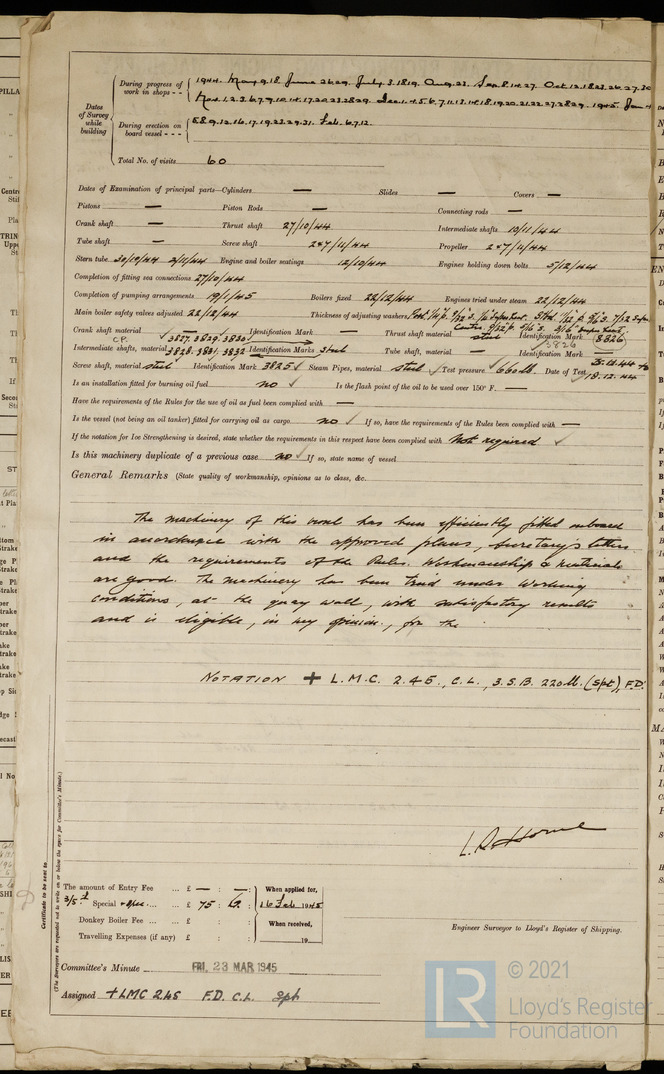 During progress of work in shops - - 1944. May 9.18. June 26.29. July 3.18.19. Aug. 23. Sep. 8.14.27. Oct. 12.18.23.26.27.30
Nov. 1.2.3.6.7.9.10.14.17.20.23.28.29. Dec. 1.4.5.6.7.11.13.14.18.19.20.21.22.27.28.29. 1945. Jan.
Dates of Survey while building
During erection on board vessel - - - 5.8.9.12.16.17.19.23.29.31. Feb. 6.7.12.
Total No. of visits 60
Dates of Examination of principal parts—Cylinders — Slides — Covers —
Pistons — Piston Rods — Connecting rods —
Crank shaft — Thrust shaft 27/10/44 Intermediate shafts 10/11/44
Tube shaft — Screw shaft 2&7/11/44 Propeller 2&7/11/44
Stern tube 2/11/44 Engine and boiler seatings 12/10/44 Engines holding down bolts 5/12/44
Completion of fitting sea connections 27/10/44
Completion of pumping arrangements 19/1/45 Boilers fixed 22/12/44 Engines tried under steam 22/12/44
Main boiler safety valves adjusted 22/12/44 Thickness of adjusting washers
Crank shaft material Identification Mark — Thrust shaft material steel Identification Mark 3826
3827. 3829. 3830
Intermediate shafts, material 3828. 3831. 3832 Identification Marks Steel Tube shaft, material — Identification Mark —
Screw shaft, material steel Identification Mark 3825 Steam Pipes, material steel Test pressure 660 lb. Date of Test 18.12.44
Is an installation fitted for burning oil fuel no Is the flash point of the oil to be used over 150° F. —
Have the requirements of the Rules for the use of oil as fuel been complied with —
Is the vessel (not being an oil tanker) fitted for carrying oil as cargo no If so, have the requirements of the Rules been complied with —
If the notation for Ice Strengthening is desired, state whether the requirements in this respect have been complied with Not required
Is this machinery duplicate of a previous case no If so, state name of vessel
General Remarks (State quality of workmanship, opinions as to class, &c.
The machinery of this vessel has been efficiently fitted onboard
in accordance with the approved plans, Secretary's letters
and the requirements of the Rules. Workmanship & materials
are good. The machinery has been tried under working
conditions, at the quay wall, with satisfactory results
and is eligible, in my opinion, for the
NOTATION + L.M.C. 2.45., C.L., 3.S.B. 220 lb. (Spt), F.D.
L.R. Horne
Engineer Surveyor to Lloyd's Register of Shipping.
The amount of Entry Fee ... £ — : — : When applied for,
Special ... £ 75 : 6 : 16 Feb 1945
Donkey Boiler Fee ... £ : : When received,
Travelling Expenses (if any) £ : : 19
Certificate to be sent to
(The Surveyors are requested not to write on or below the space for Committee's Minute.)
Committee's Minute FRI. 23 MAR 1945
Assigned + LMC 2.45 F.D. C.L. Spt
LR
© 2021
Lloyd's Register
Foundation